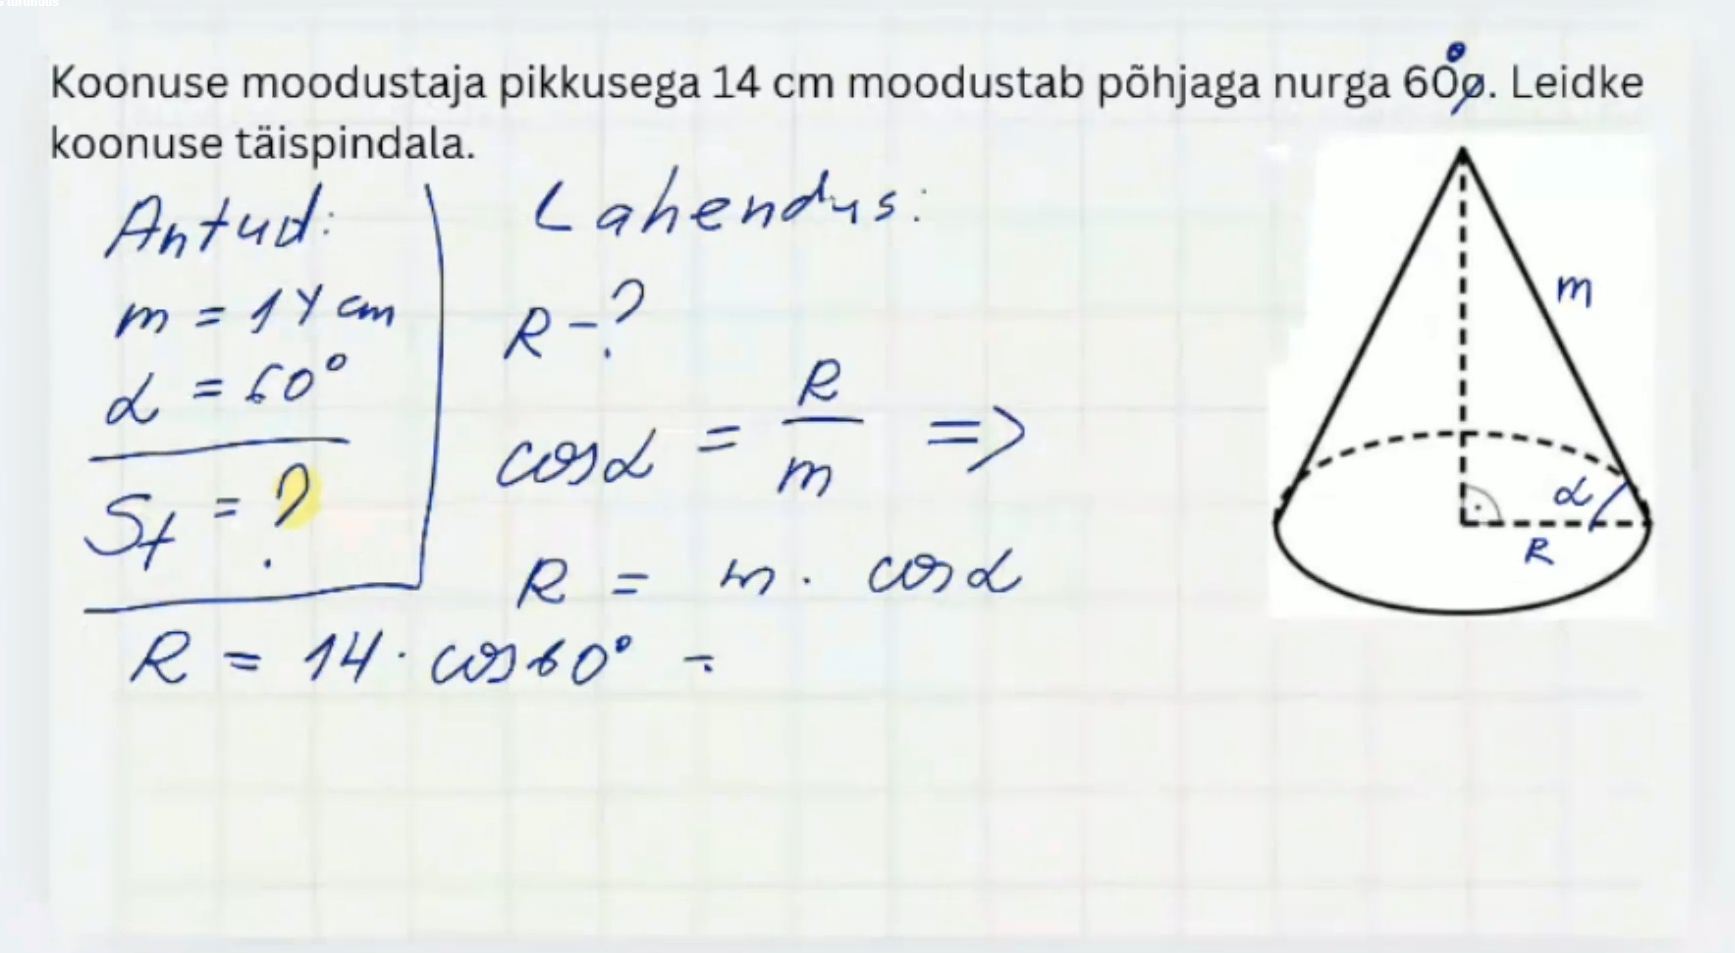 Koonuse moodustaja pikkusega 14 cm moodustab põhjaga nurga 60°. Leidke
koonuse täispindala.
Antud:
m = 14 cm
α = 60°
St = ?
Lahendus:
R - ?
cosα = R/m =>
R = m · cosα
R = 14 · cos60° =
m
α
R